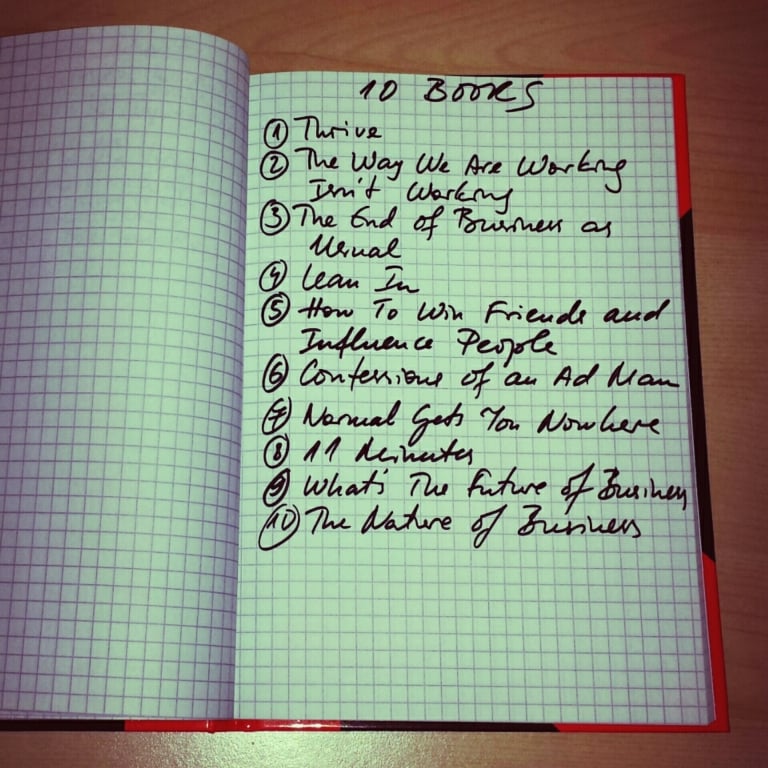 10 BOOKS
① Thrive
② The Way We Are Working
Isn't Working
③ The End of Business as
Usual
④ Lean In
⑤ How To Win Friends and
Influence People
⑥ Confessions of an Ad Man
⑦ Normal Gets You Nowhere
⑧ 11 Minutes
⑨ What's The Future of Business
⑩ The Nature of Business